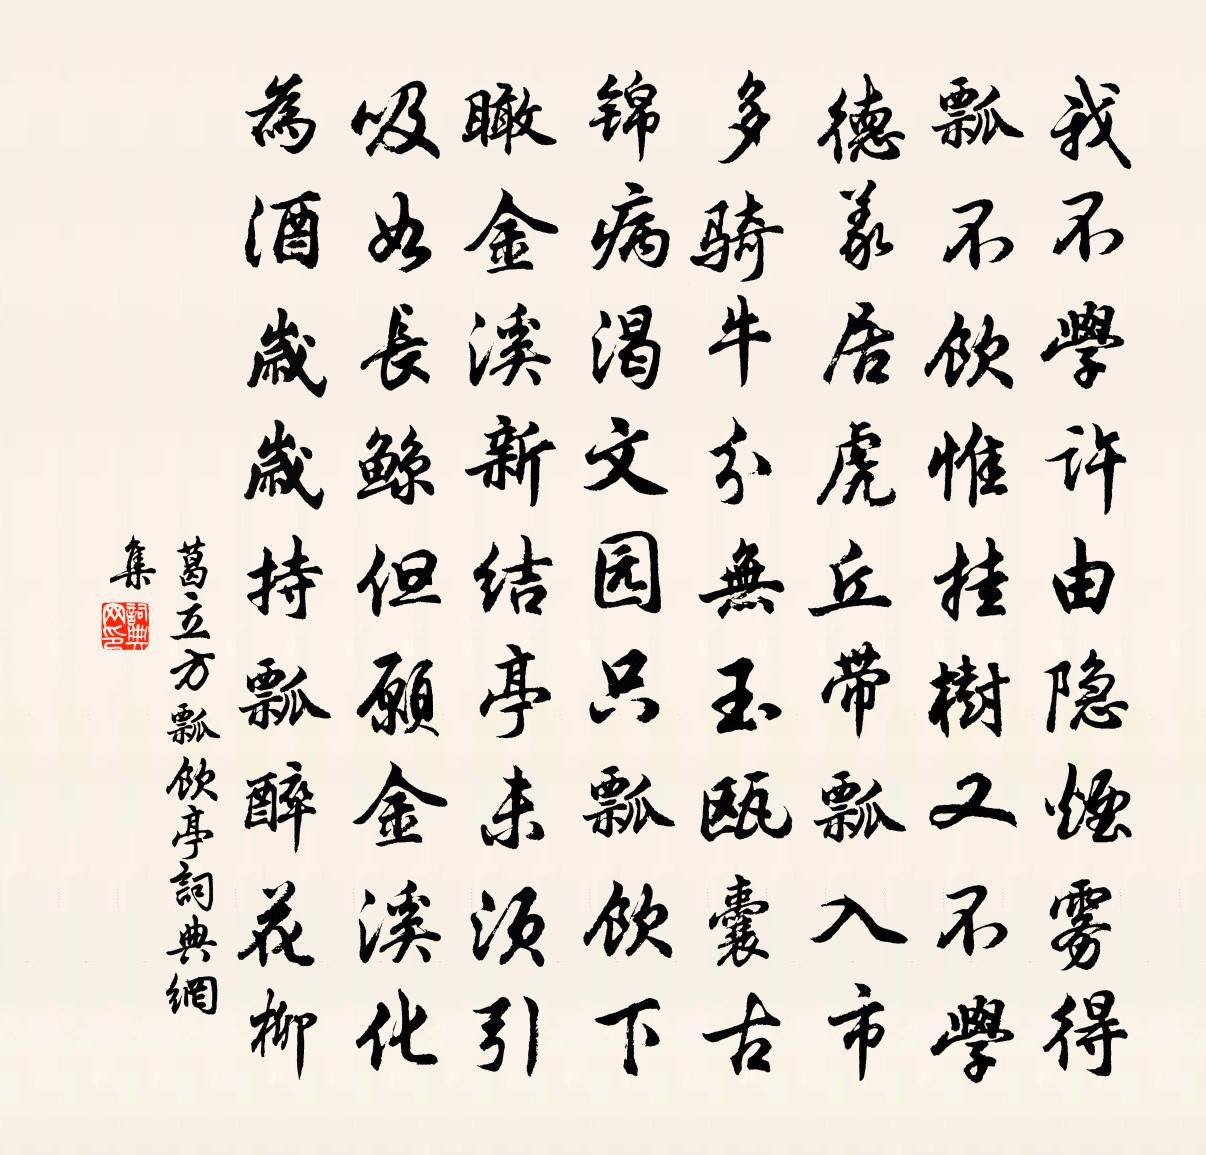 我不學许由隐煙雾得
瓢不飲惟挂樹又不學
德義居虎丘带瓢入市
多骑牛分無玉瓯囊古
锦病渴文园只瓢飲下
瞰金溪新结亭未须引
吸如長鲸但願金溪化
為酒歲歲持瓢醉花柳
葛立方瓢飲亭詞典網
集
詞典网印